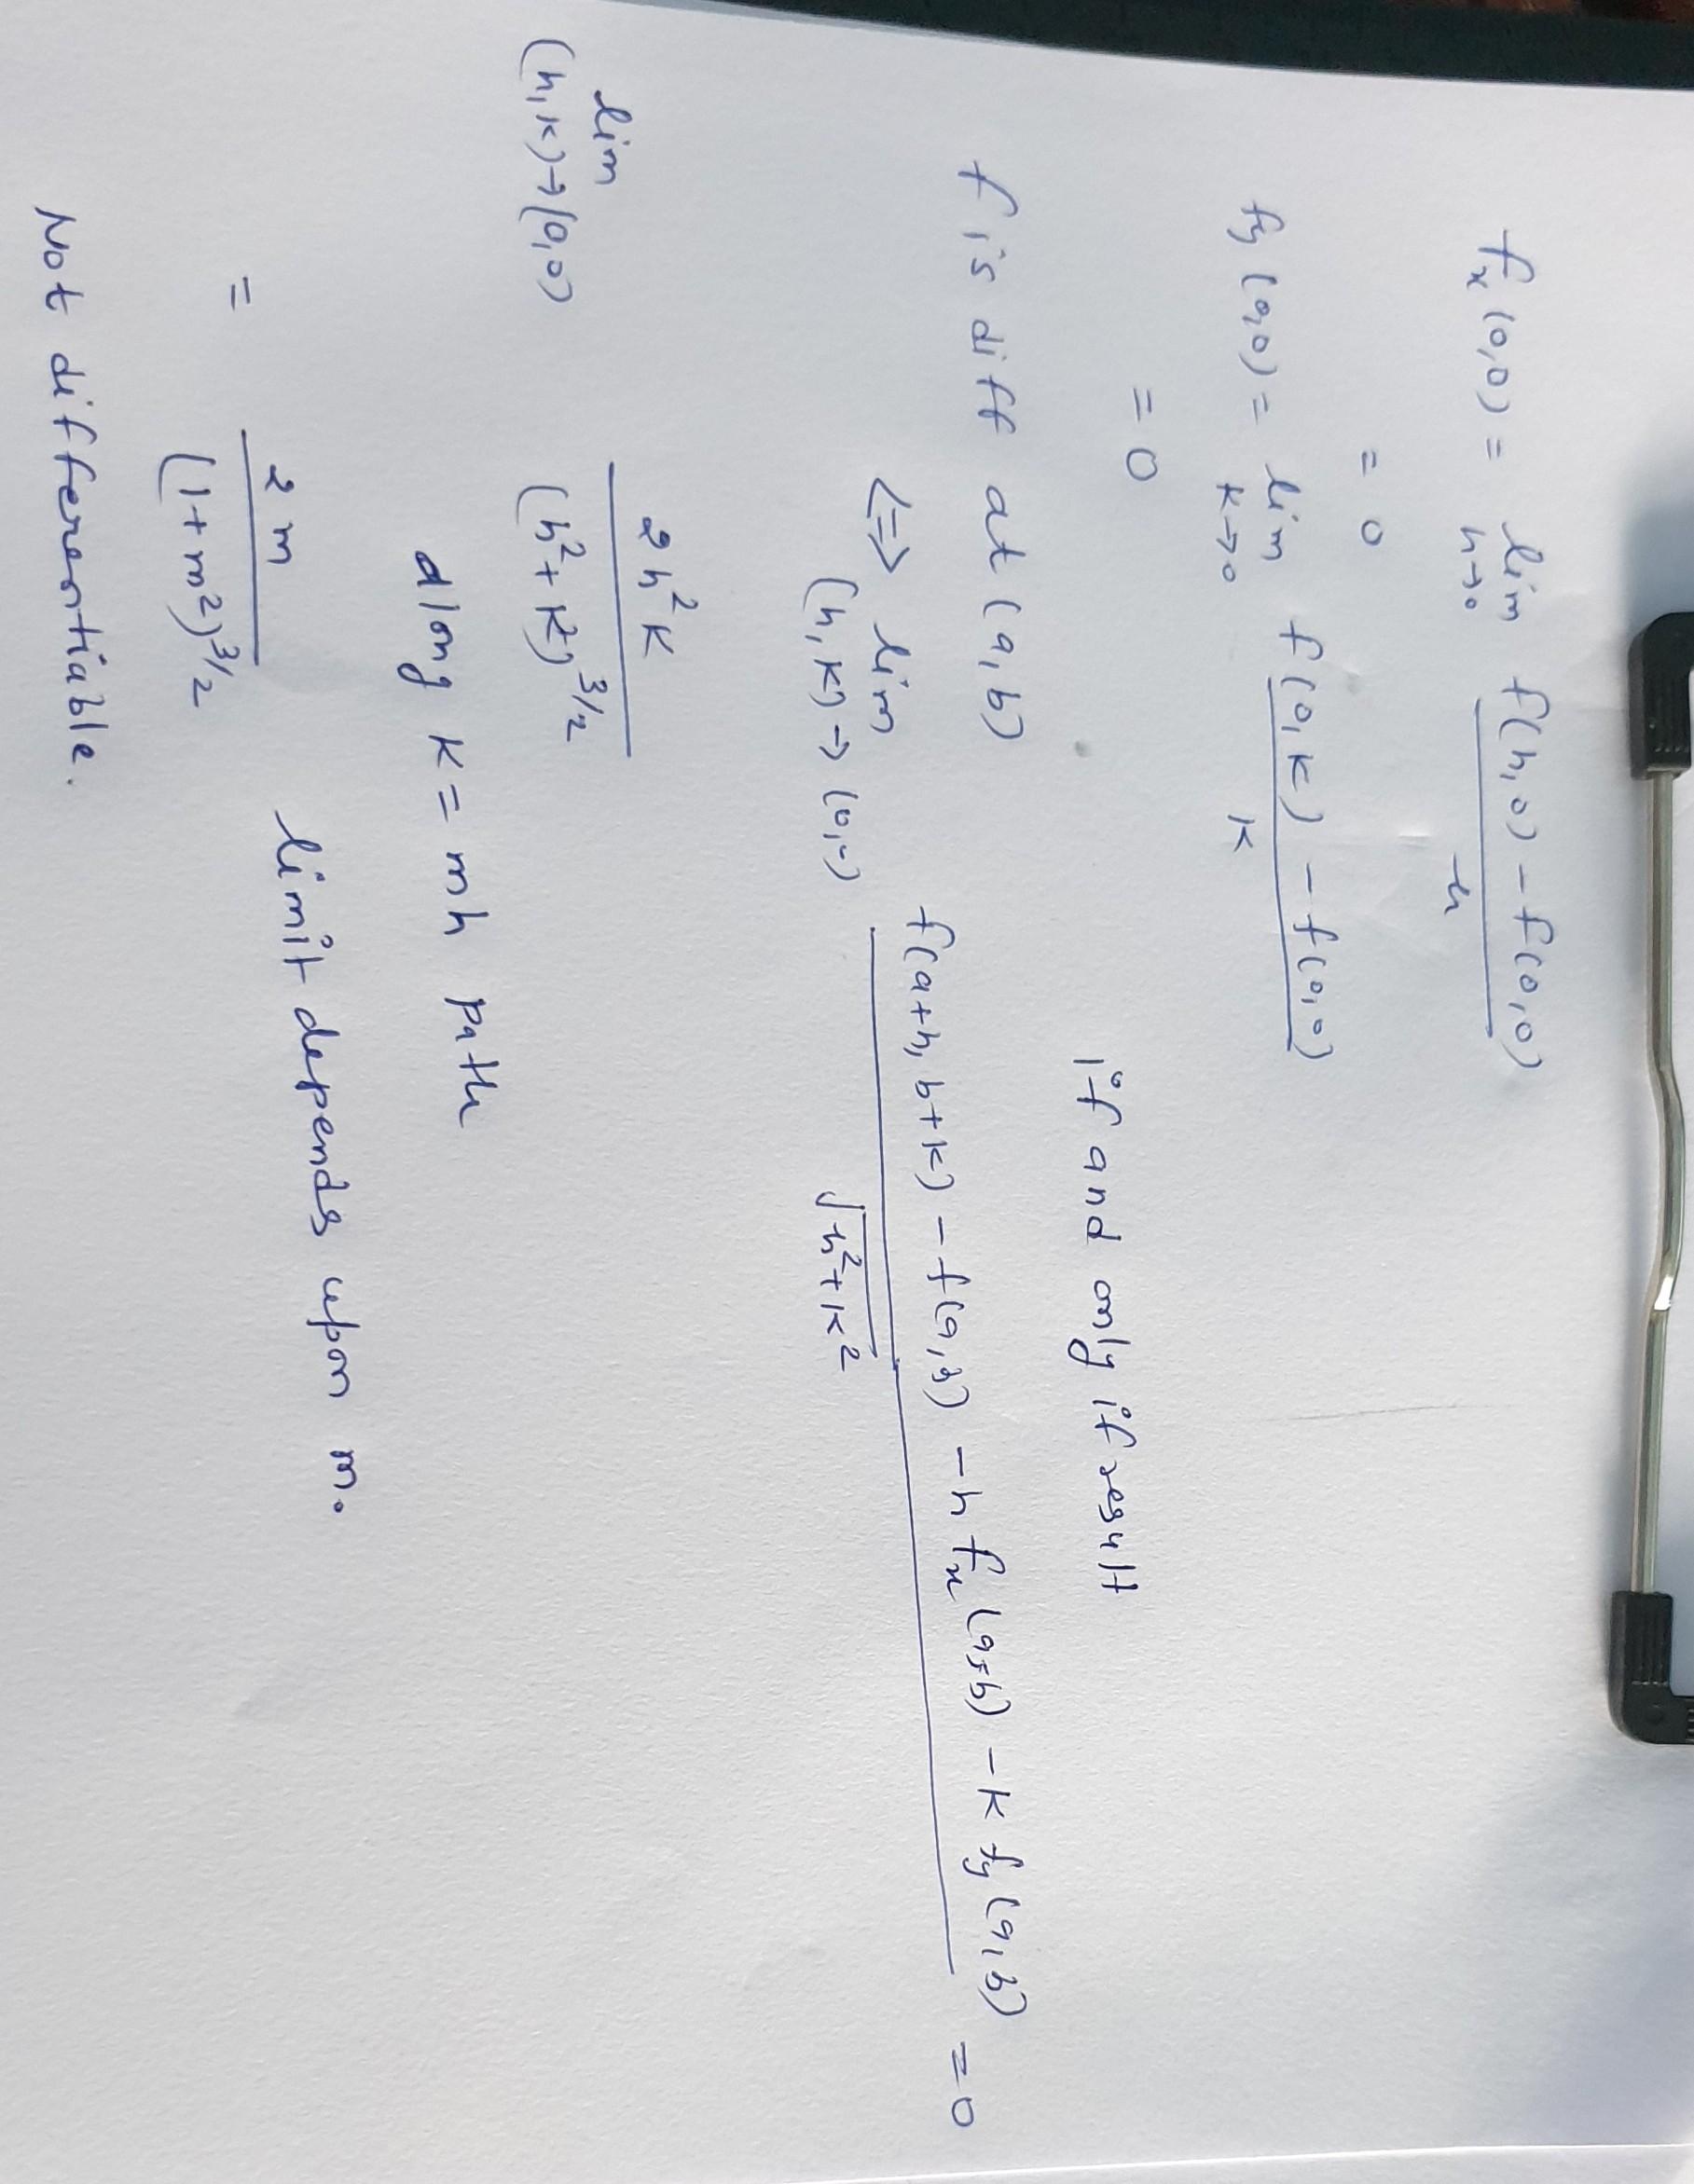 fx (0,0) = lim h→0 f(h,0) - f(0,0) / h
= 0
fy (0,0) = lim k→0 f(0,k) - f(0,0) / k
= 0
if and only if result
f is diff at (a,b)
<=> lim (h,k) → (0,0) f(a+h, b+k) - f(a,b) - h fx (a,b) - k fy (a,b) / √h²+k² = 0
lim (h,k)→(0,0) 2h²k / (h²+k²)^3/2
along k = mh path
= 2m / (1+m²)^3/2 limit depends upon m.
Not differentiable.